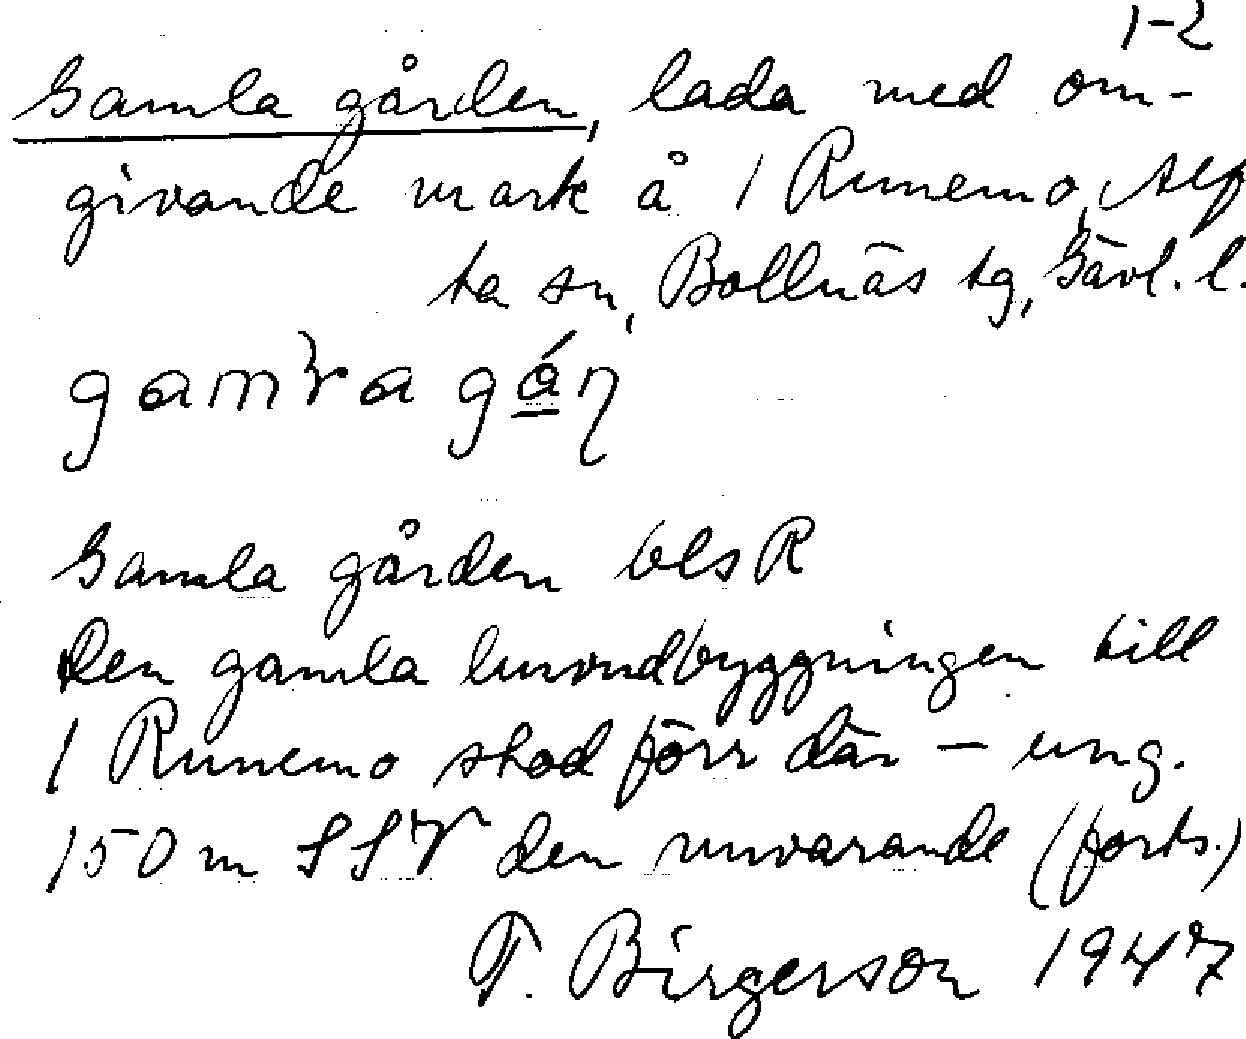 1-2
Gamla gården, lada med om-
givande mark å 1 Runemo, Alf
ta sn, Bollnäs tg, Gävl. l.
Gamla gården bls R
Den gamla huvudbyggningen till
1 Runemo stod förr där - ung.
150 m SSV den nuvarande (forts.)
T. Birgerson 1947